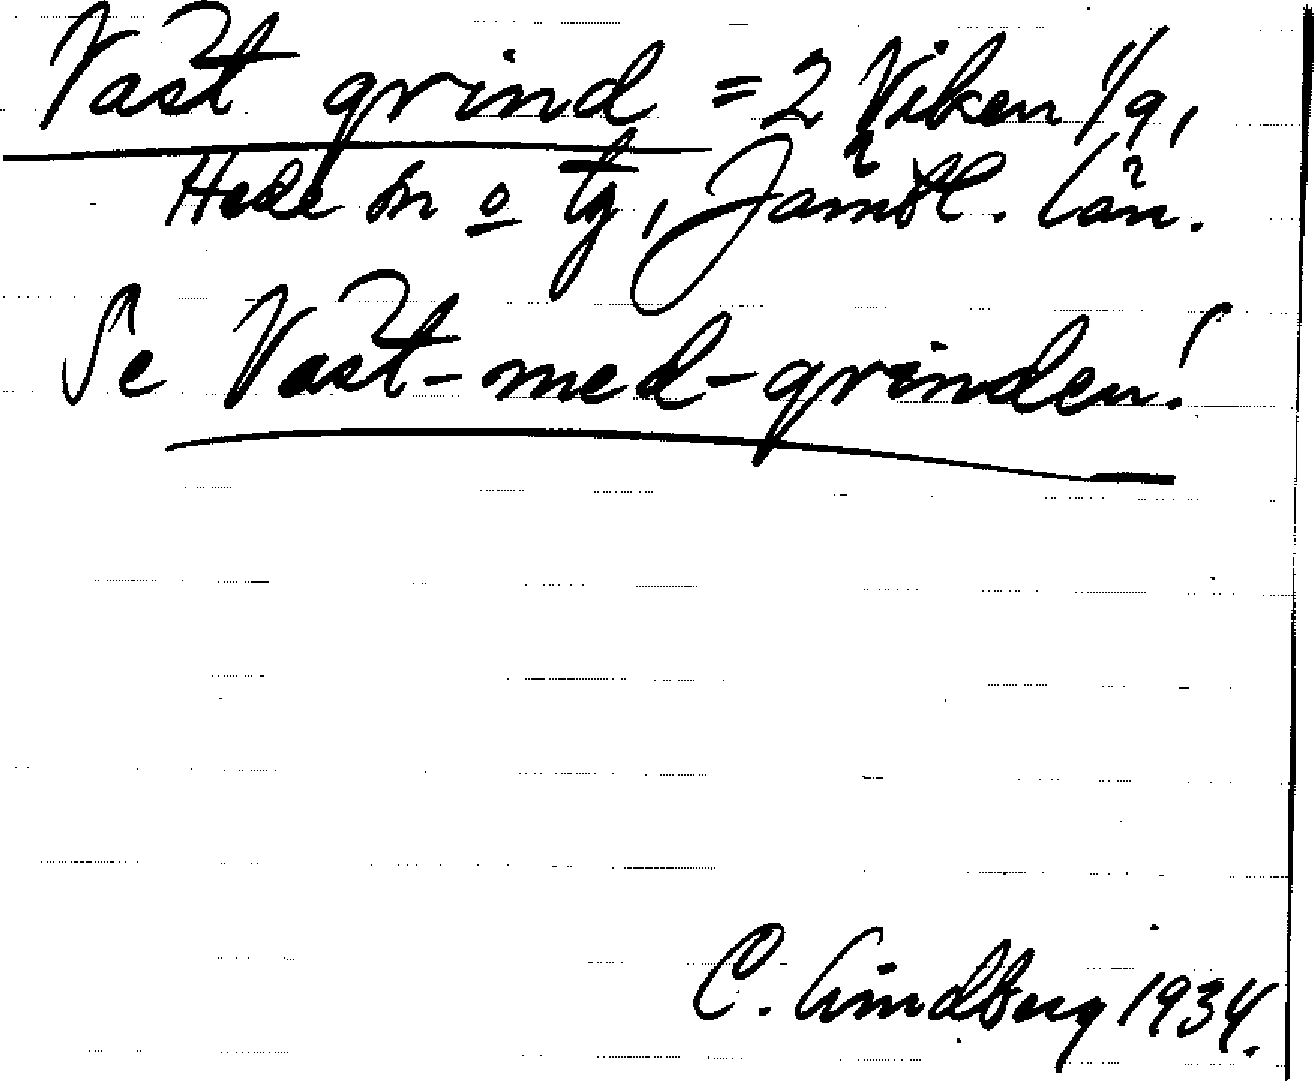 Vast grind = 2 Viken 1/9,
Hede sn o tg, Jämtl. län.
Se Vast-med-grinden!
C. Lindberg 1934.